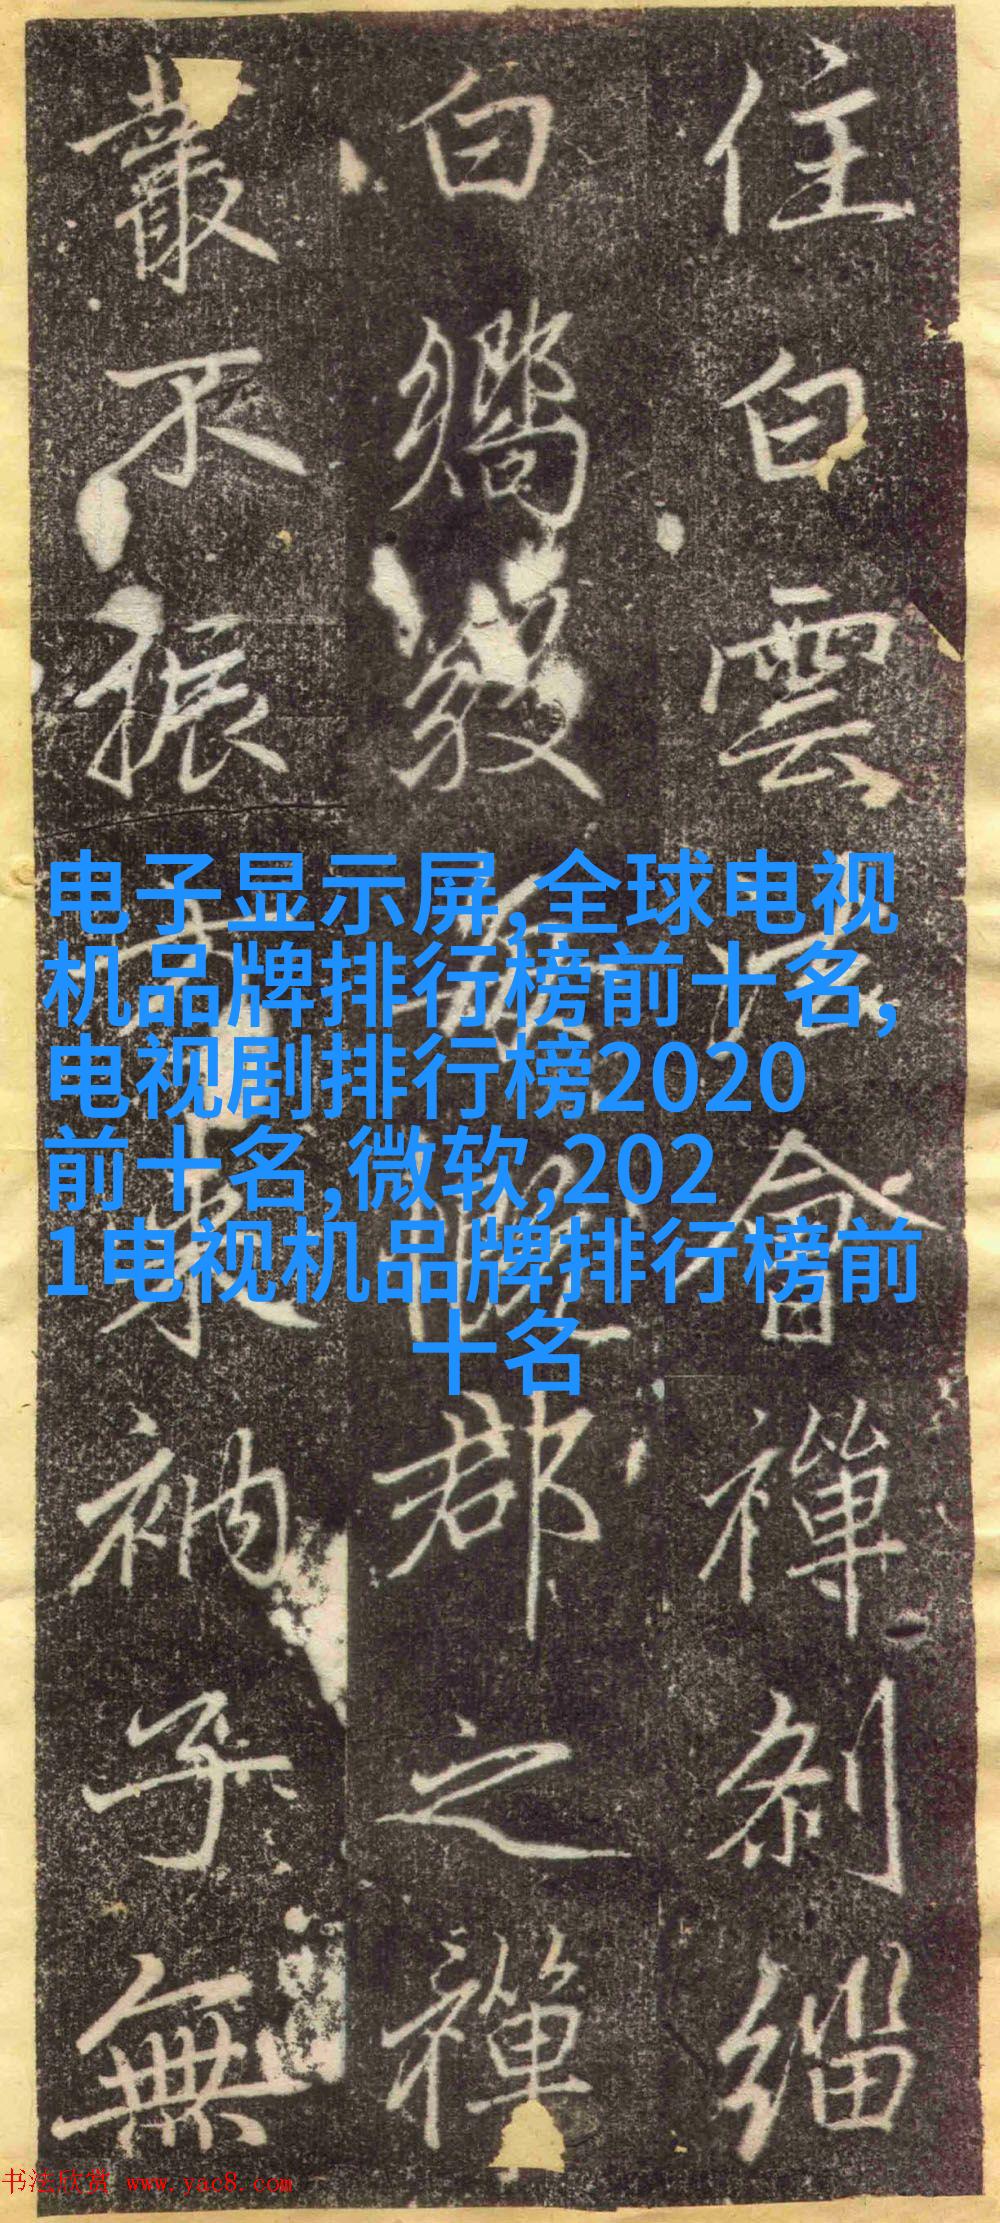 住白雲
會禪剎緇
白
郡之禪
叢不振
衲子無
电子显示屏,全球电视
机品牌排行榜前十名,
电视剧排行榜2020
前十名,微软,202
1电视机品牌排行榜前
十名
书法欣赏 www.yac8.com